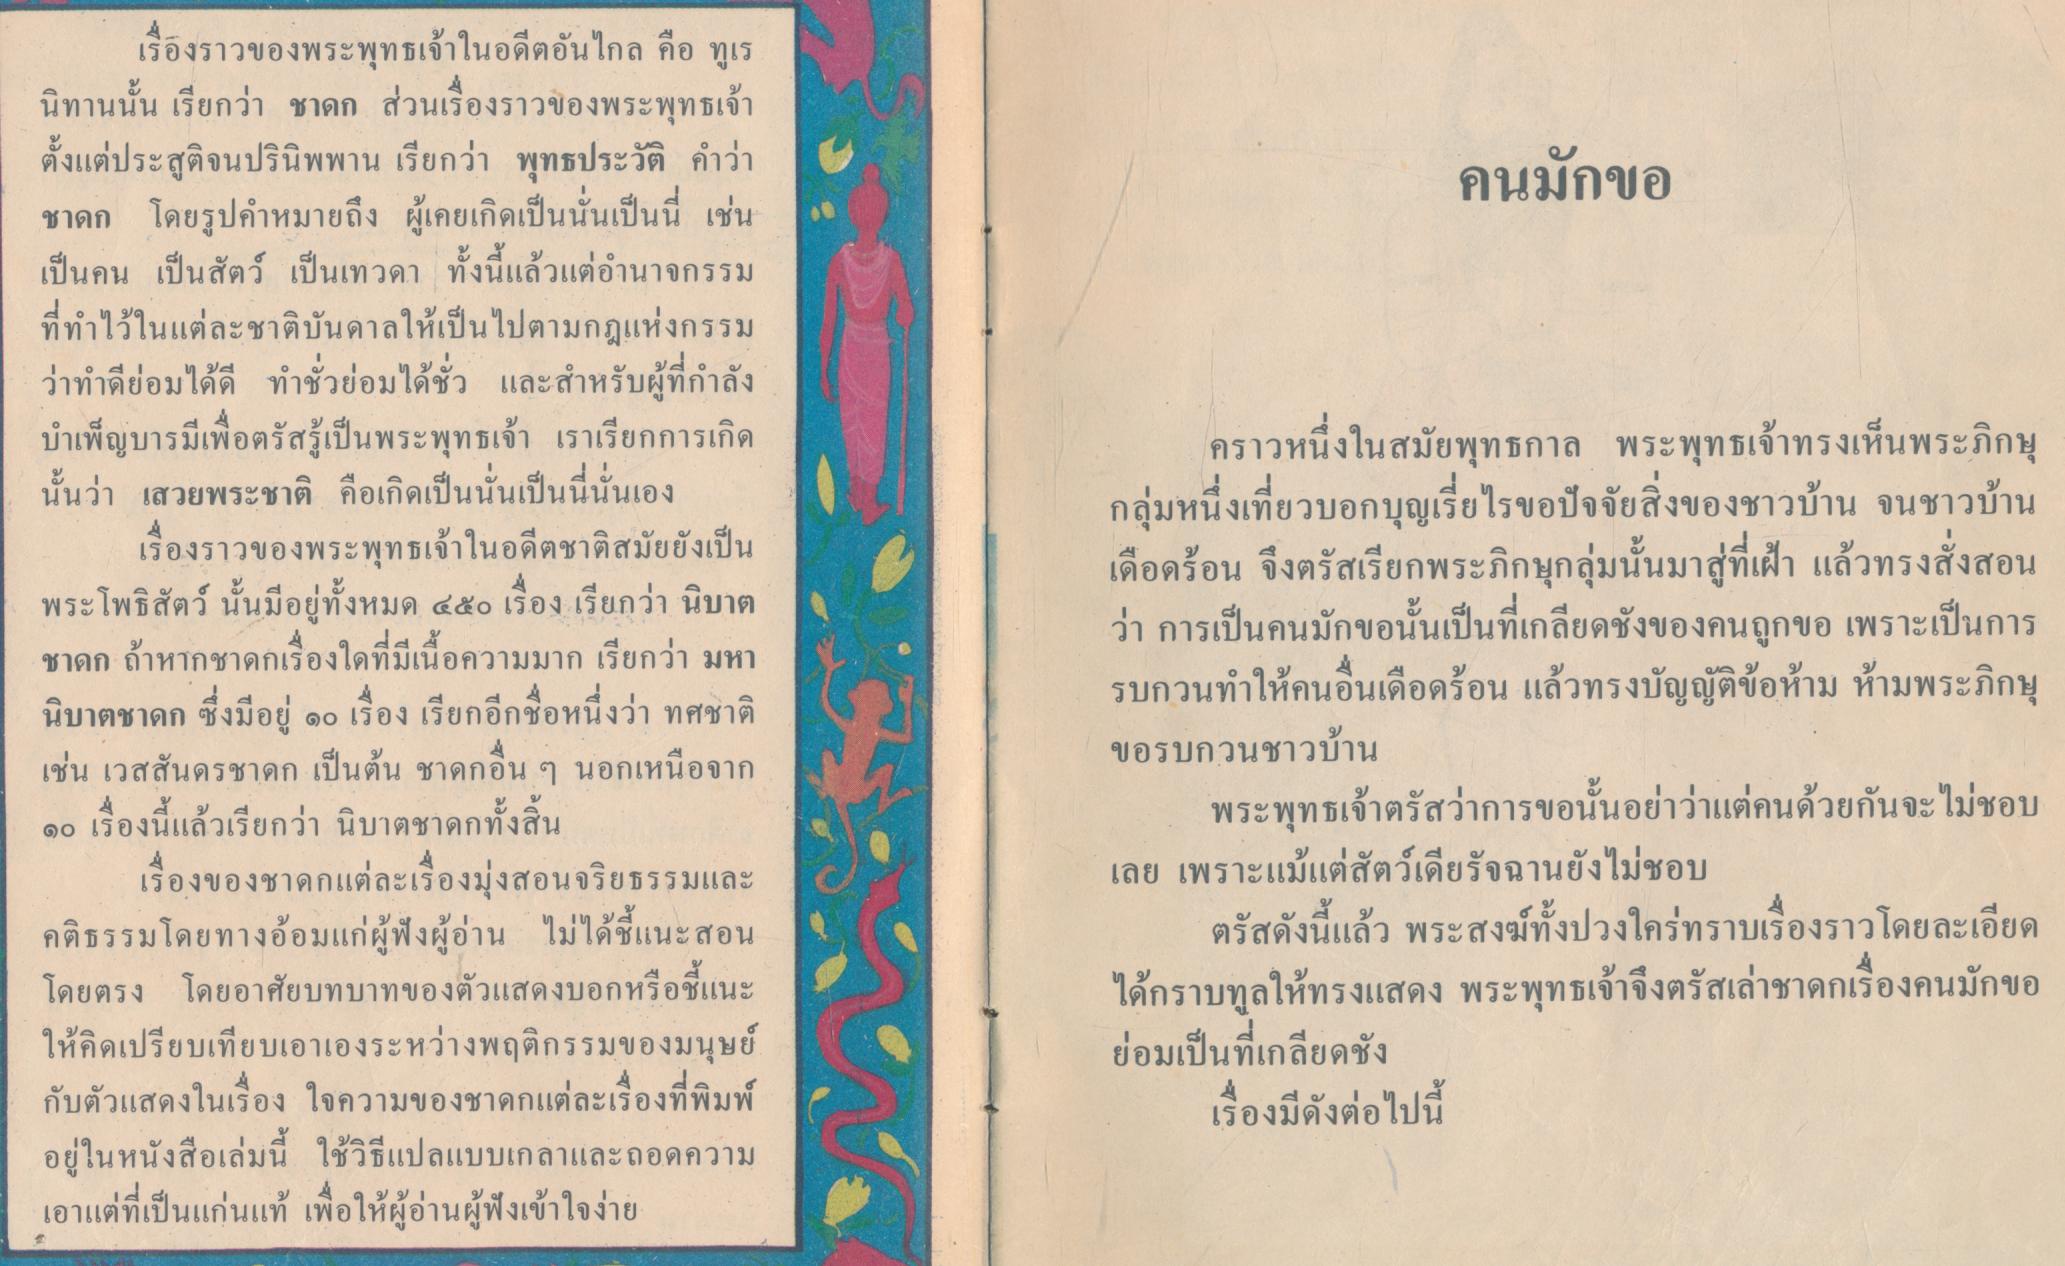 เรื่องราวของพระพุทธเจ้าในอดีตอันไกล คือ ทูเร
นิทานนั้น เรียกว่า ชาดก ส่วนเรื่องราวของพระพุทธเจ้า
ตั้งแต่ประสูติจนปรินิพพาน เรียกว่า พุทธประวัติ คำว่า
ชาดก โดยรูปคำหมายถึง ผู้เคยเกิดเป็นนั่นเป็นนี่ เช่น
เป็นคน เป็นสัตว์ เป็นเทวดา ทั้งนี้แล้วแต่อำนาจกรรม
ที่ทำไว้ในแต่ละชาติบันดาลให้เป็นไปตามกฎแห่งกรรม
ว่าทำดีย่อมได้ดี ทำชั่วย่อมได้ชั่ว และสำหรับผู้ที่กำลัง
บำเพ็ญบารมีเพื่อตรัสรู้เป็นพระพุทธเจ้า เราเรียกการเกิด
นั้นว่า เสวยพระชาติ คือเกิดเป็นนั่นเป็นนี่นั่นเอง
เรื่องราวของพระพุทธเจ้าในอดีตชาติสมัยยังเป็น
พระโพธิสัตว์ นั้นมีอยู่ทั้งหมด ๔๕๐ เรื่อง เรียกว่า นิบาต
ชาดก ถ้าหากชาดกเรื่องใดที่มีเนื้อความมาก เรียกว่า มหา
นิบาตชาดก ซึ่งมีอยู่ ๑๐ เรื่อง เรียกอีกชื่อหนึ่งว่า ทศชาติ
เช่น เวสสันดรชาดก เป็นต้น ชาดกอื่น ๆ นอกเหนือจาก
๑๐ เรื่องนี้แล้วเรียกว่า นิบาตชาดกทั้งสิ้น
เรื่องของชาดกแต่ละเรื่องมุ่งสอนจริยธรรมและ
คติธรรมโดยทางอ้อมแก่ผู้ฟังผู้อ่าน ไม่ได้ชี้แนะสอน
โดยตรง โดยอาศัยบทบาทของตัวแสดงบอกหรือชี้แนะ
ให้คิดเปรียบเทียบเอาเองระหว่างพฤติกรรมของมนุษย์
กับตัวแสดงในเรื่อง ใจความของชาดกแต่ละเรื่องที่พิมพ์
อยู่ในหนังสือเล่มนี้ ใช้วิธีแปลแบบเกลาและถอดความ
เอาแต่ที่เป็นแก่นแท้ เพื่อให้ผู้อ่านผู้ฟังเข้าใจง่าย
คนมักขอ
คราวหนึ่งในสมัยพุทธกาล พระพุทธเจ้าทรงเห็นพระภิกษุ
กลุ่มหนึ่งเที่ยวบอกบุญเรี่ยไรขอปัจจัยสิ่งของชาวบ้าน จนชาวบ้าน
เดือดร้อน จึงตรัสเรียกพระภิกษุกลุ่มนั้นมาสู่ที่เฝ้า แล้วทรงสั่งสอน
ว่า การเป็นคนมักขอนั้นเป็นที่เกลียดชังของคนถูกขอ เพราะเป็นการ
รบกวนทำให้คนอื่นเดือดร้อน แล้วทรงบัญญัติข้อห้าม ห้ามพระภิกษุ
ขอรบกวนชาวบ้าน
พระพุทธเจ้าตรัสว่าการขอนั้นอย่าว่าแต่คนด้วยกันจะไม่ชอบ
เลย เพราะแม้แต่สัตว์เดียรัจฉานยังไม่ชอบ
ตรัสดังนี้แล้ว พระสงฆ์ทั้งปวงใคร่ทราบเรื่องราวโดยละเอียด
ได้กราบทูลให้ทรงแสดง พระพุทธเจ้าจึงตรัสเล่าชาดกเรื่องคนมักขอ
ย่อมเป็นที่เกลียดชัง
เรื่องมีดังต่อไปนี้